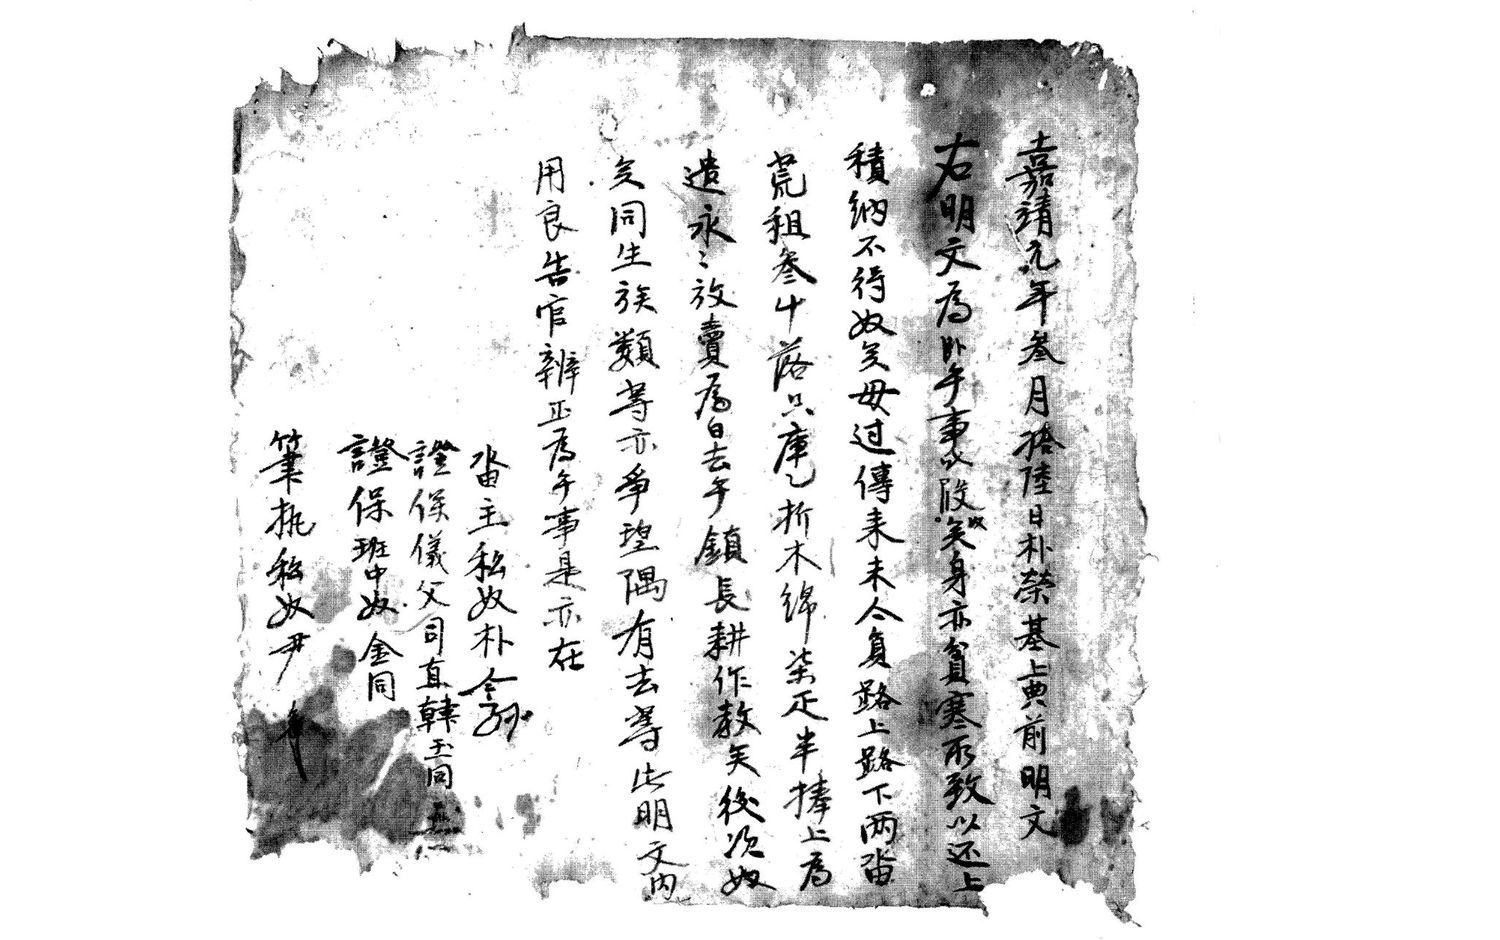 嘉靖元年叄月拾陸日朴榮基上典前明文
右明文爲卧乎事叱段奴矣身亦貧寒所致以还上
積納不得奴矣母过傳来未今負路上路下两畓
荒租叄斗落只庫乙折木綿柒疋半捧上爲
遣永〻放賣爲白去乎鎮長耕作教矣後次奴
矣同生族類等亦爭望隅有去等此明文內
用良告官辨正爲乎事是亦在
畓主私奴朴今孫
證保儀父司直韓玉同
證保班中奴金同
筆执私奴尹